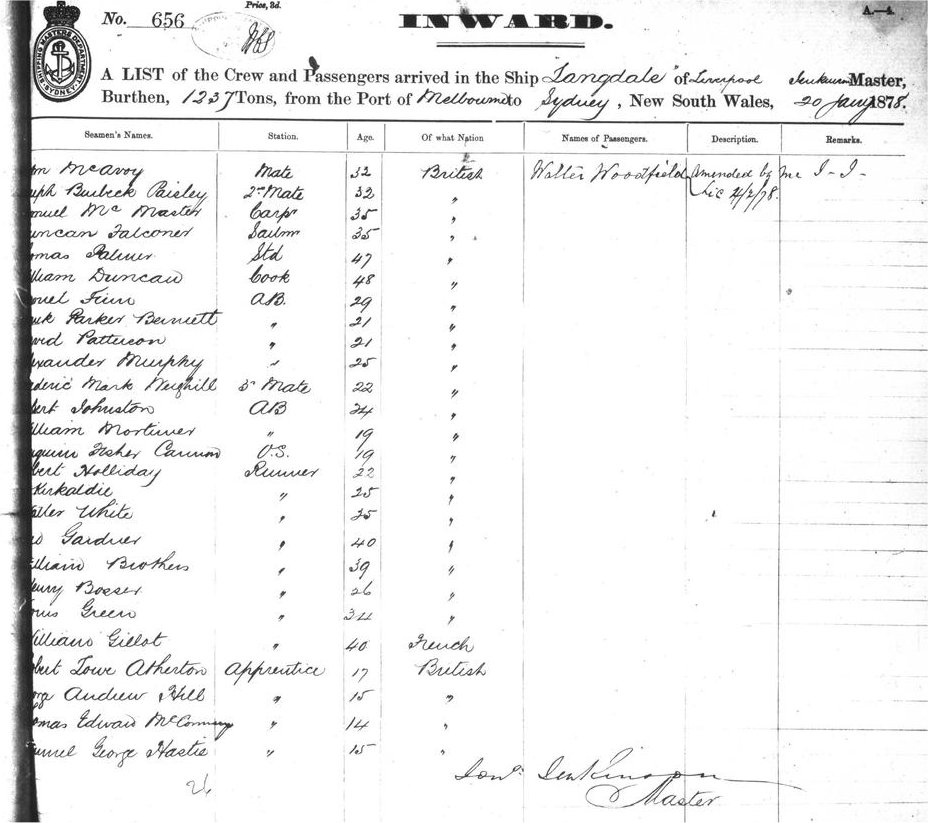 Price, 3d.
No. 656
INWARD.
A.—4.
SHIPPING MASTERS DEPARTMENT SYDNEY
A LIST of the Crew and Passengers arrived in the Ship "Langdale" of Liverpool Master,
Burthen, 1237 Tons, from the Port of Melbourne to Sydney, New South Wales, 20 Jany 1878.
Seamen's Names. Station. Age. Of what Nation Names of Passengers. Description. Remarks.
McAvoy Mate 32 British Walter Woodfield Amended by me I-I-
Burbeck Paisley 2nd Mate 32 " 4/2/78.
muel McMaster Carpr 35 "
uncan Falconer Sailmr 35 "
omas Palmer Std 47 "
lliam Duncan Cook 48 "
Finn AB. 29 "
Parker Bennett " 21 "
vid Patterson " 21 "
exander Murphy " 25 "
ederic Mark Weighill 3r Mate 22 "
bert Johnston AB 24 "
illiam Mortimer " 19 "
Fisher Cannon O.S. 19 "
bert Holliday Runner 22 "
Kirkaldie " 25 "
alter White " 35 "
Gardner " 40 "
illiam Brothers " 39 "
enry Bosser " 26 "
ouis Green " 34 "
illiam Gillot " 40 French
bert Lowe Atherton Apprentice 17 British
Andrew Hill " 15 "
omas Edward " 14 "
muel George Hastie " 15 "
26
Jenkinson
Master